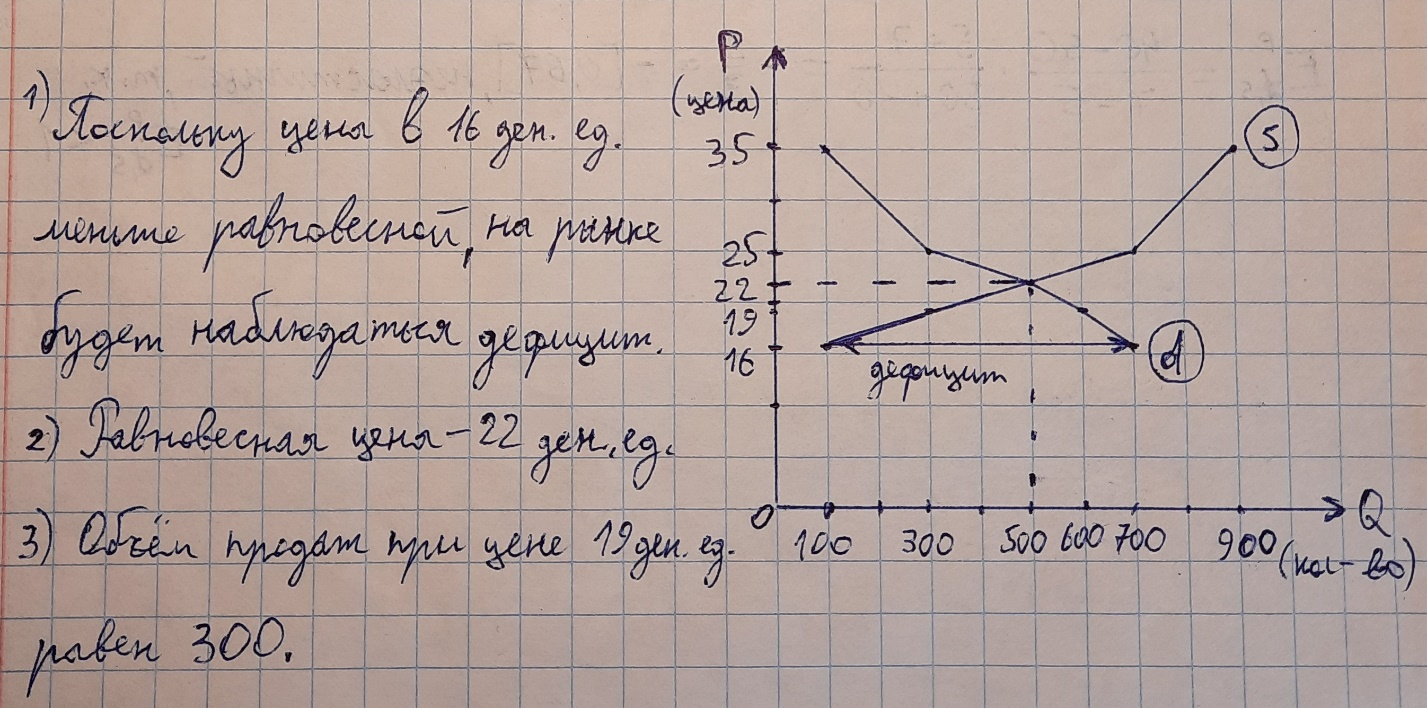 1) Поскольку цены в 16 ден. ед.
меньше равновесной, на рынке
будет наблюдаться дефицит.
2) Равновесная цена – 22 ден. ед.
3) Объём продаж при цене 19 ден. ед.
равен 300.
P
(цена)
35
25
22
19
16
0
S
d
дефицит
100 300 500 600 700 900
Q
(кол-во)